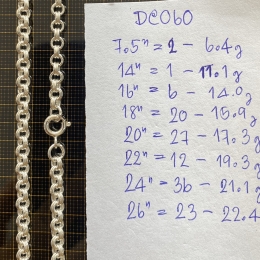 DC060
7.5" = 2 - 6.4g
14" = 1 - 11.1g
16" = 6 - 14.0g
18" = 20 - 15.9g
20" = 27 - 17.3g
22" = 12 - 19.3g
24" = 36 - 21.1g
26" = 23 - 22.4